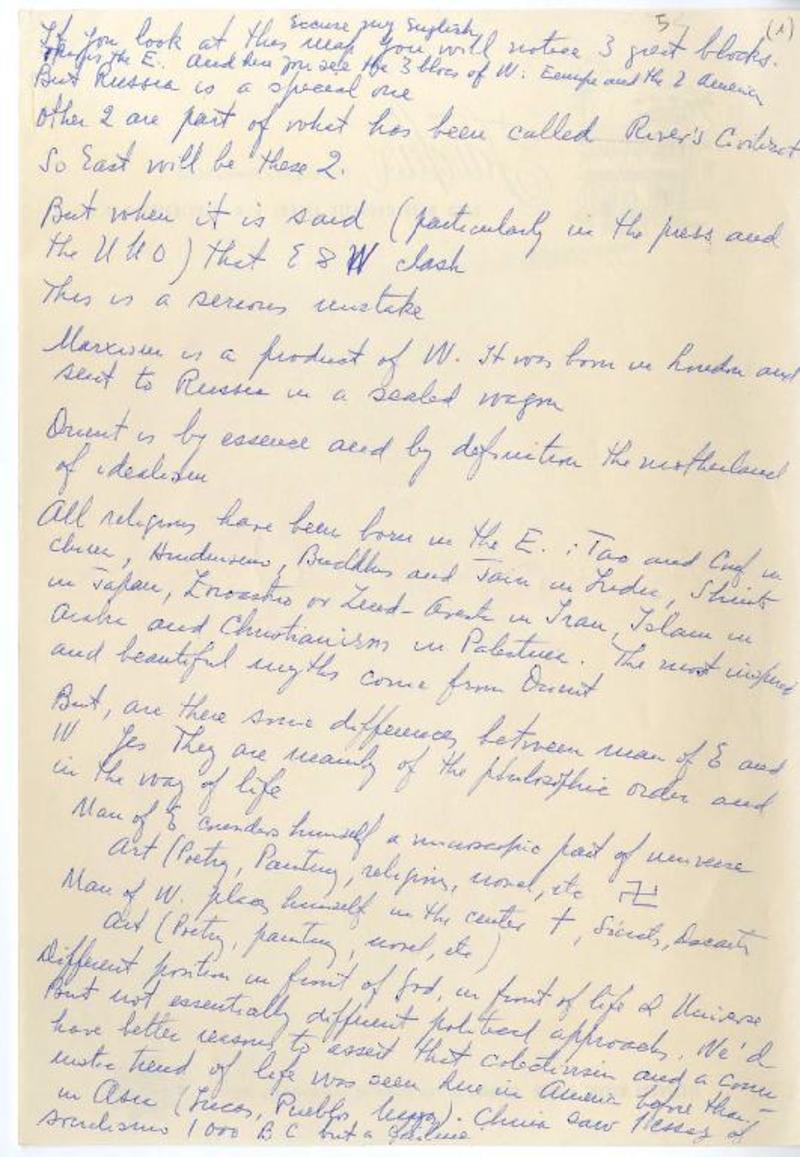 Excuse my English
5 (1)
If you look at this map you will notice 3 great blocks.
This is the E. and here you see the 3 blocs of W. Europe and the 2 America
But Russia is a special one
Other 2 are part of what has been called River's Civilizat
So East will be these 2.
But when it is said (particularly in the press and
the UNO) that E & W clash
This is a serious mistake
Marxism is a product of W. It was born in London and
sent to Russia in a sealed wagon
Orient is by essence and by definition the motherland
of idealism
All religions have been born in the E. : Tao and Conf in
China, Hinduismo, Buddhis and Jain in India, Shinto
in Japan, Zoroastro or Zend-Avesta in Iran, Islam in
Arabia and Christianism in Palestina. The most inspired
and beautiful myths come from Orient
But, are there some differences between man of E and
W Yes They are mainly of the philosophic order and
in the way of life
Man of E considers himself a microscopic part of universe
Art (Poetry, Painting, religion, novel, etc 卍
Man of W. places himself in the center †, Socrates, Descartes
Art (Poetry, painting, novel, etc)
Different position in front of God, in front of life & Universe
But not essentially different political approachs. We'd
have better reasons to assert that colectivism and a comu-
nistic trend of life was seen here in America before than
in Asia (Incas, Pueblo,). China saw essay of
socialismo 1000 BC but a failure